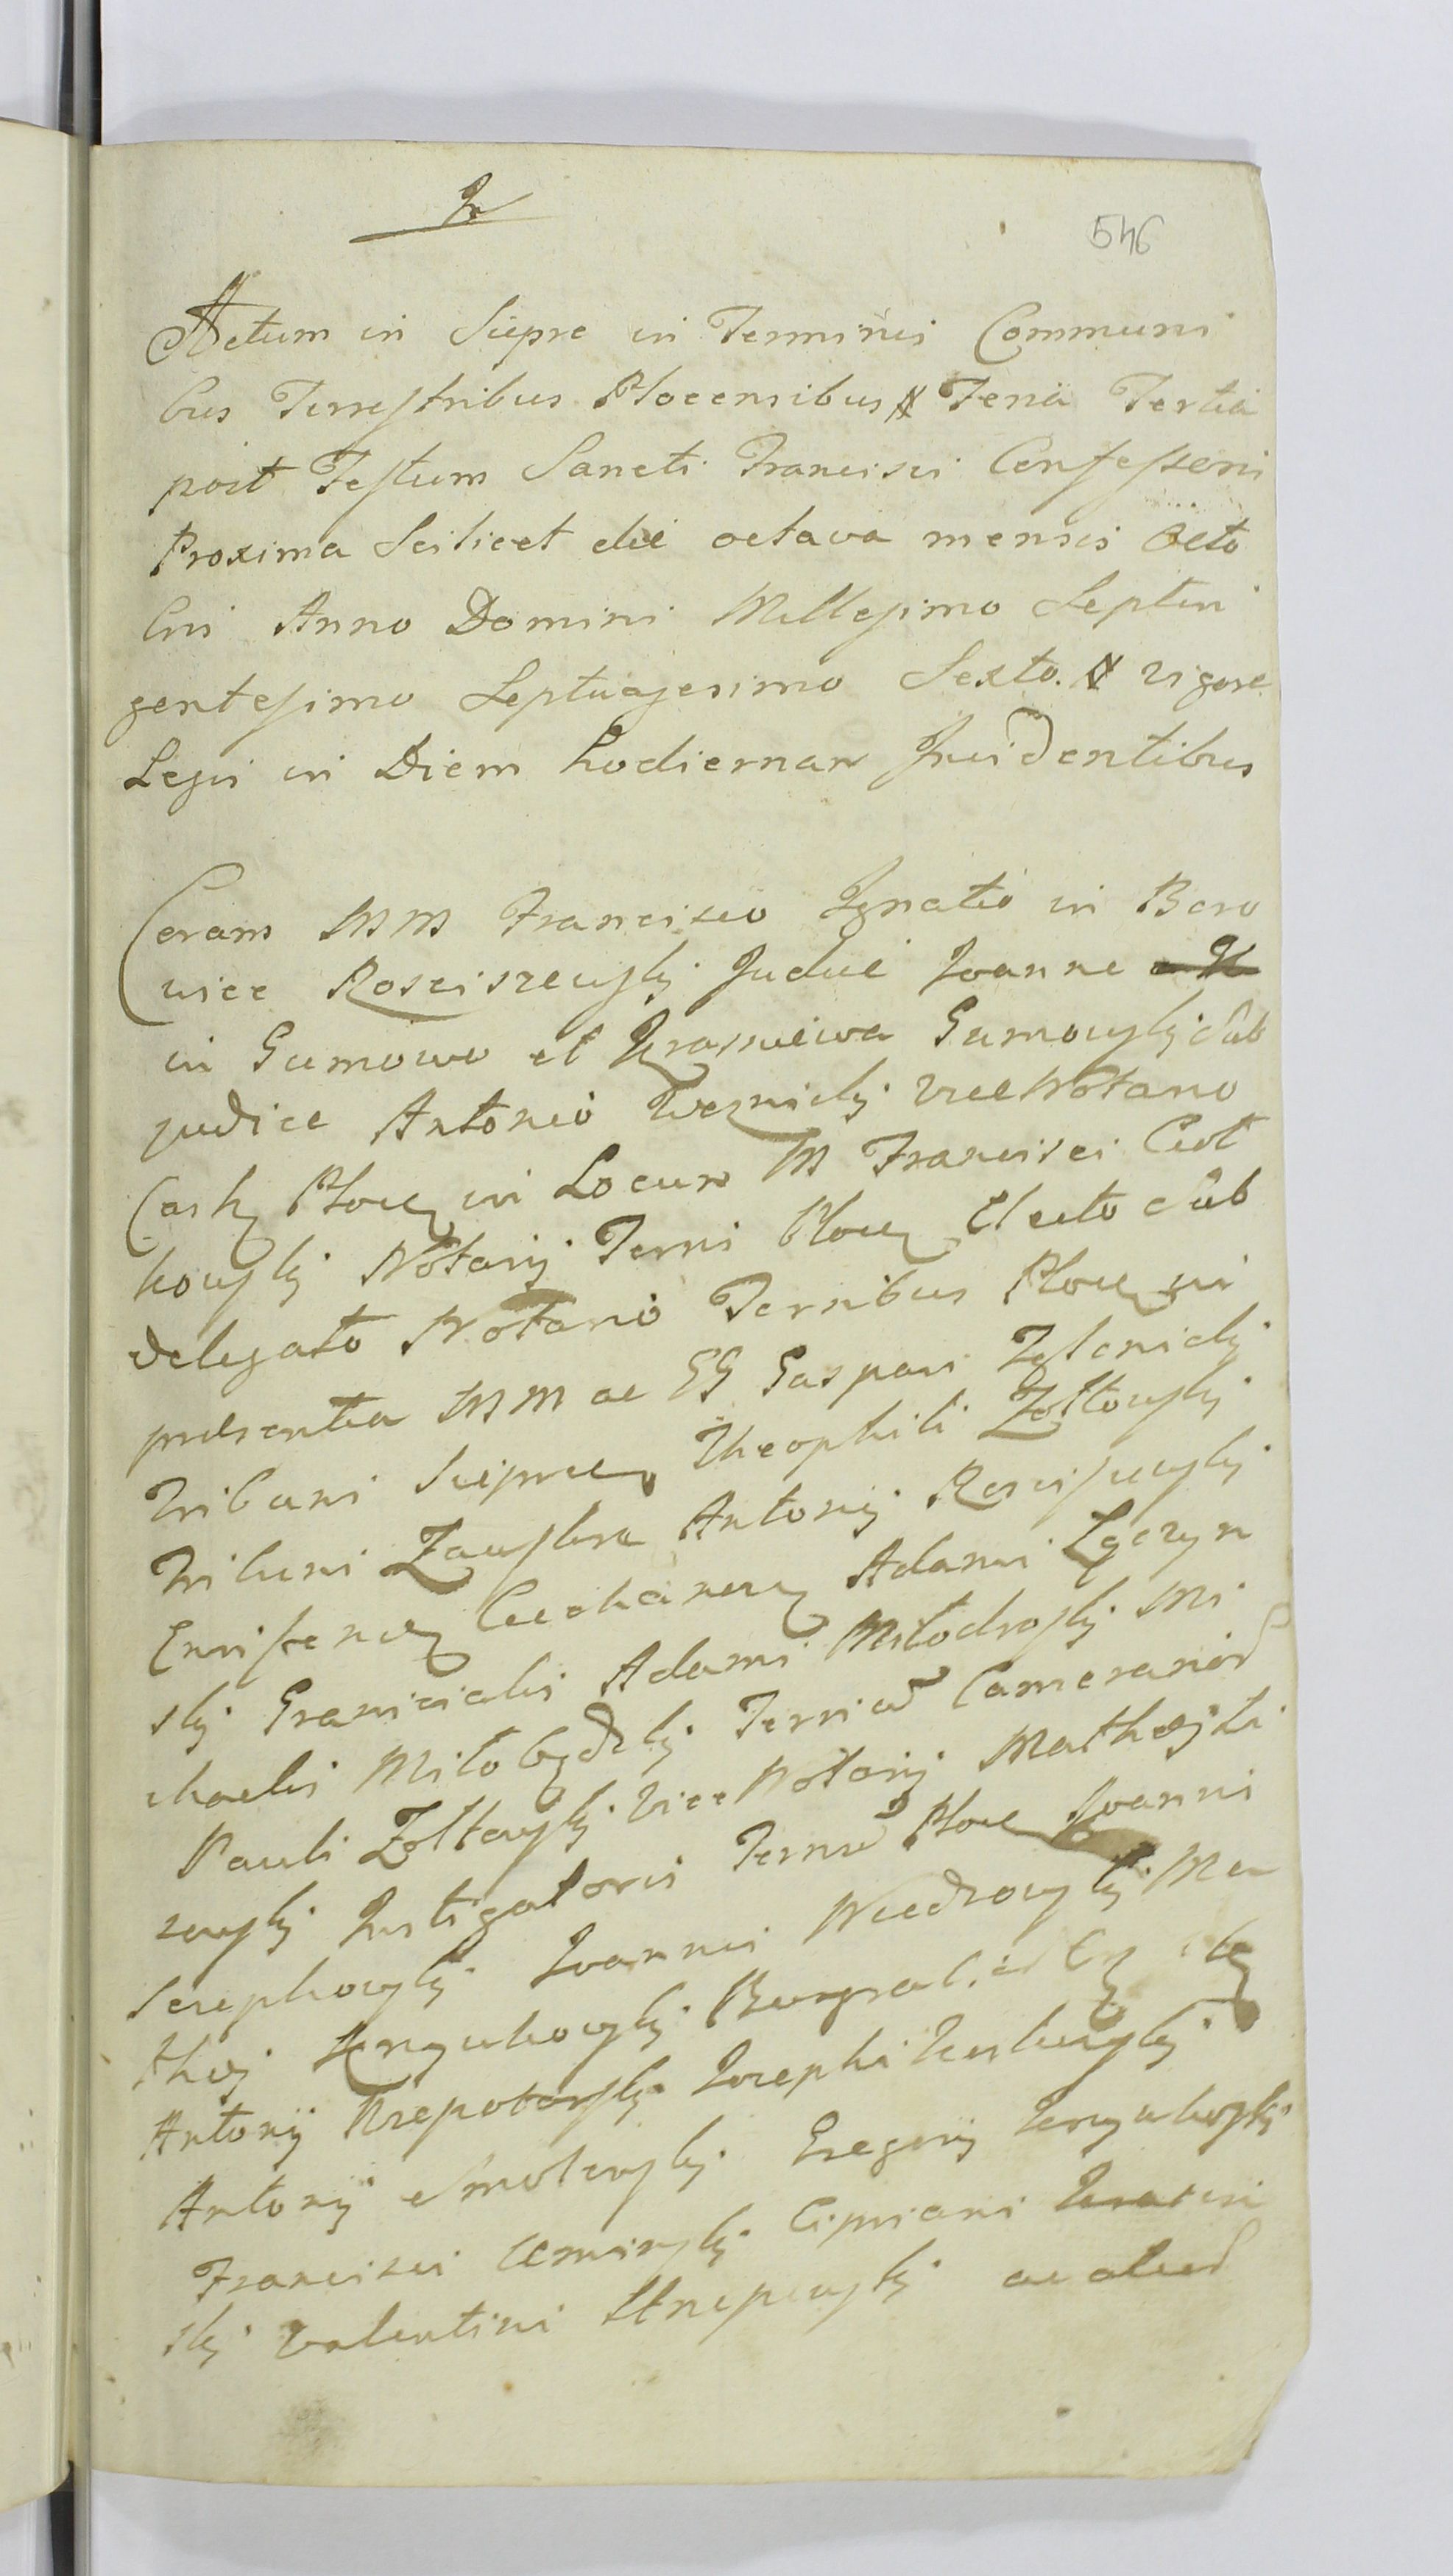 2
546
Actum in Sieprc in Terminis Communi
bus Terrestribus Plocensibus Feria Tertia
post Festum Sancti Francisci Confessoris
Proxima Scilicet die octava mensis Octo
bris Anno Domini Millesimo Septin
gentesimo Septuagesimo Sexto. vigore
Legis in Diem hodiernam Incidentibus
Coram MM Francisco Ignatio in Boro
wice Rosciszewsky Judice Joanne
in Gumowo et Krasniewa Gumowsky Sub
judice Antonio Zwegnicky Vice Notario
Castr Ploce in Locum M Francisci Ciot
kowsky Notarij Terris Ploce Electo Sub
delegato Notario Terribus Ploce in
presentia MM ac GG Gaspari Zglenicky
Tribuni Sieprce Theophili Zołtowsky
Tribuni Zawskre Antonij Rosciszewsky
Ensiferi Ciechanow Adami Łączyn
sky Granicialis Adami Miłodrosky Mi
chaelis Miłobędzky Terris Camerarior
Pauli Zołtowsky Vice Notarij Mathej Li
sewsky Instigatoris Terris Ploce Joannis
Josephowsky Joannis Niedrowsky Ma
thej Burgrabi
Antonij Josephi
Antonij Smolewsky Gregorij
Francisci Cipriani
sky Valentini ac alior